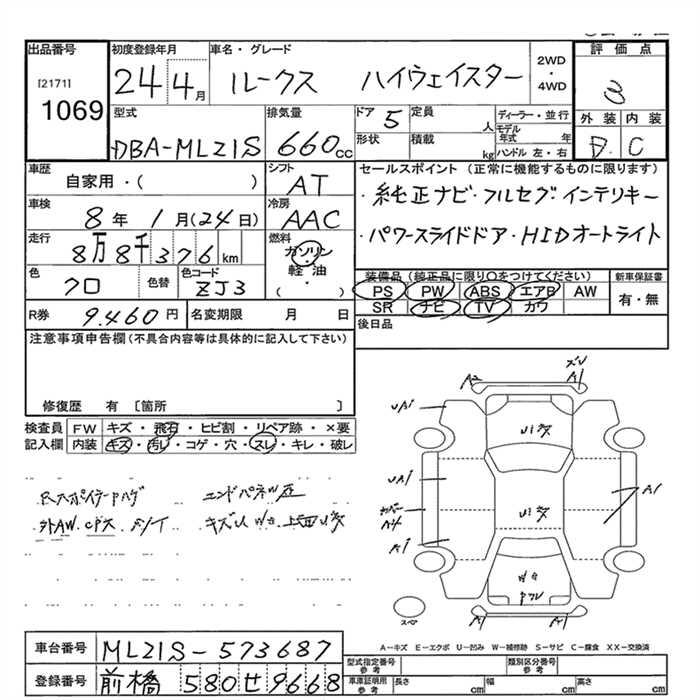 出品番号 初度登録年月 車名・グレード 評価点
[2171] 24 4月 ルークス ハイウェイスター 2WD・4WD 3
1069
型式 排気量 ドア 5 定員 人 ディーラー・並行 外装 内装
DBA-ML21S 660cc 形状 積載 kg モデル年式 年 ハンドル 左・右 D C
車歴 シフト セールスポイント (正常に機能するものに限ります)
自家用・( ) AT ・純正ナビ・フルセグ・インテリキー
車検 冷房
8年 1月(24日) AAC ・パワースライドドア・HIDオートライト
走行 燃料
8万8千376km ガソリン・軽油・( )
色 色替 色コード 装備品 (純正品に限り○をつけてください) 新車保証書
クロ ZJ3 PS PW ABS エアB AW 有・無
SR ナビ TV カワ
R券 9.460円 名変期限 月 日 後日品
注意事項申告欄(不具合内容等は具体的に記入して下さい)
修復歴 有 〔箇所 〕
検査員 FW キズ・飛石・ヒビ割・リペア跡・×要
記入欄 内装 キズ・汚レ・コゲ・穴・スレ・キレ・破レ
A2 A1
UA1
UA1
A1
A1
スペア
A-キズ E-エクボ U-凹み W-補修跡 S-サビ C-腐食 XX-交換済
車台番号 ML21S-573687 型式指定番号 参考 類別区分番号 参考
登録番号 前橋 580 せ 9668 車庫証明用 参考 長さ cm 幅 cm 高さ cm